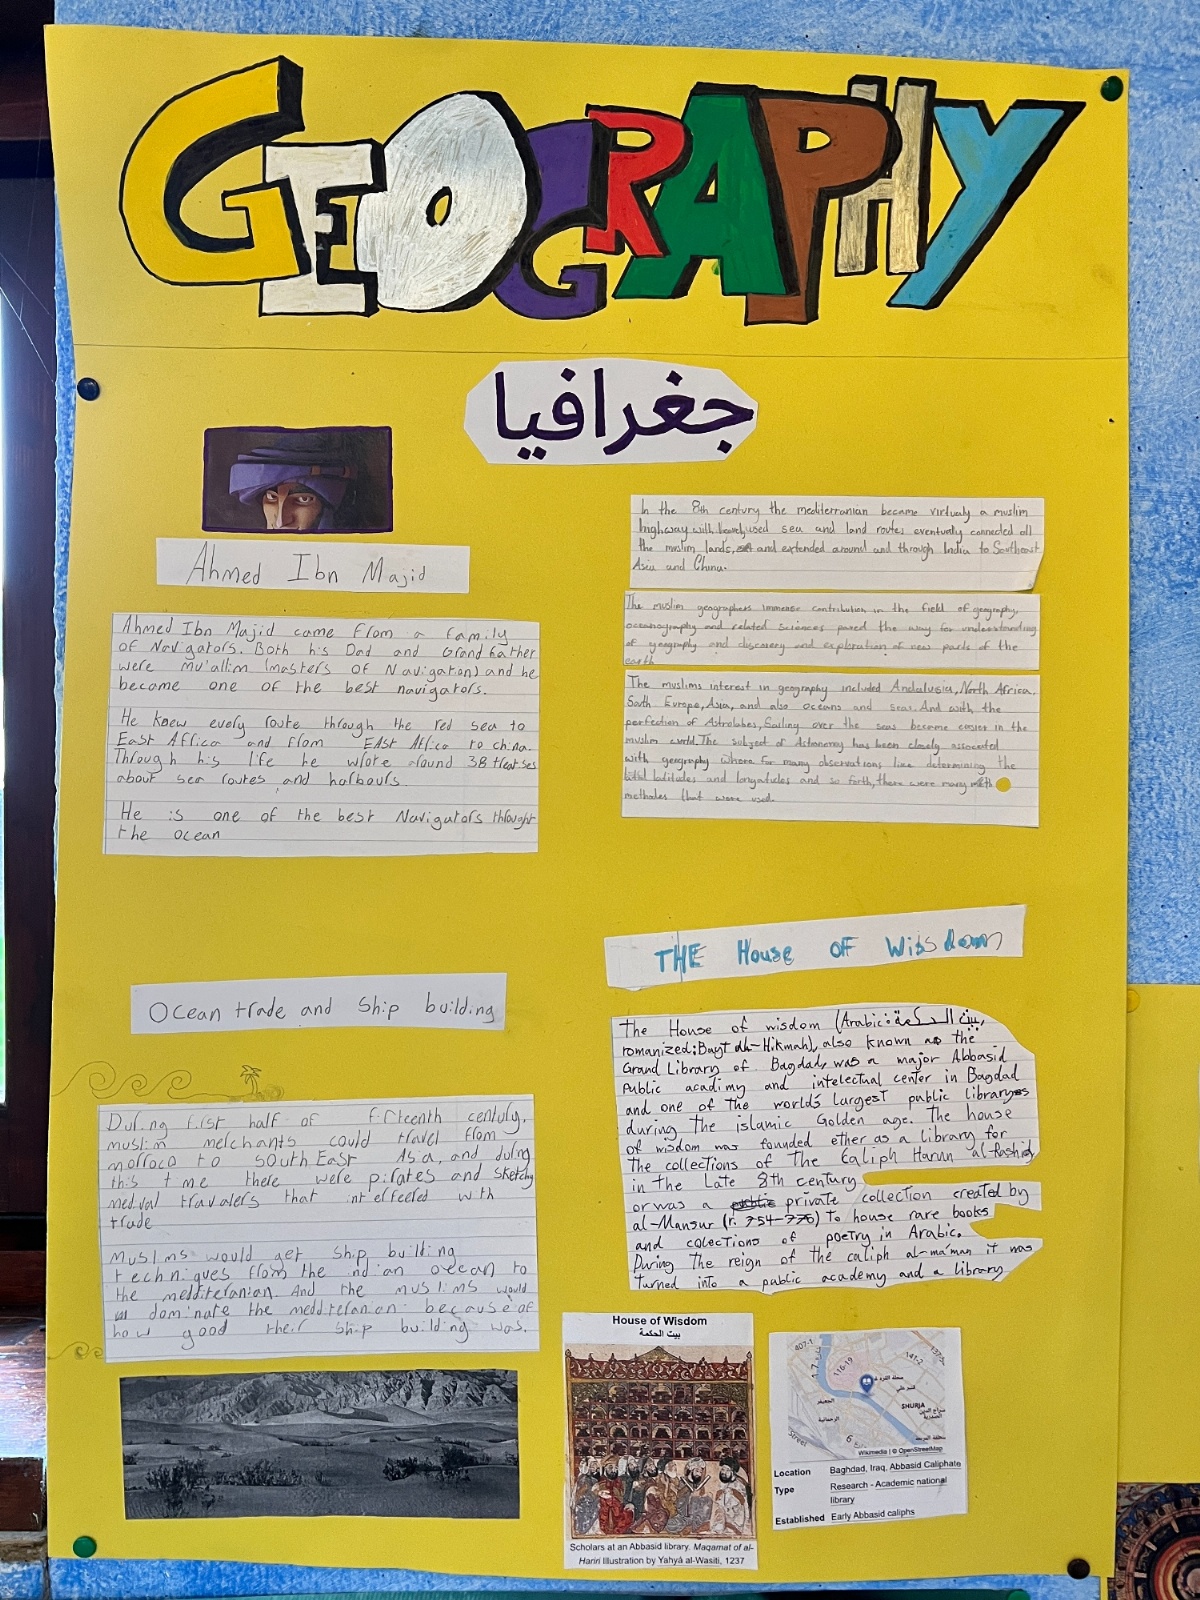 GEOGRAPHY
جغرافيا
Ahmed Ibn Majid
Ahmed Ibn Majid came from a family
of Navigators. Both his Dad and Grandfather
were mu'allim (masters of Navigation) and he
became one of the best navigators.
He knew every route through the red sea to
East Africa and from EAst Africa to china.
Through his life he wrote around 38 treatises
about sea routes and harbours
He is one of the best Navigators throught
the ocean
In the 8th century the mediterranian became virtualy a muslim
highway with heavily used sea and land routes eventually connected all
the muslim lands, and extended around and through India to Southeast
Asia and China.
The muslim geographers immense contribution in the field of geography,
oceanography and related sciences paved the way for understanding
of geography and discovery and exploration of new parts of the
earth
The muslims interest in geography included Andalusia, North Africa,
South Europe, Asia, and also oceans and seas. And with the
perfection of Astrolabes, Sailing over the seas became easier in the
muslim world. The subject of Astronomy has been closely associated
with geography where for many observations like determining the
latitudes and longatudes and so forth, there were many math
methodes that were used.
Ocean trade and Ship building
During first half of fifteenth century,
muslim merchants could travel from
morroco to south East Asia, and during
this time there were pirates and sketchy
medival travalers that inteffered with
trade
Muslims would get ship building
techniques from the indian ocean to
the mediteranian. And the muslims would
dominate the mediteranian because of
how good their ship building was.
THE House OF Wisdom
The House of wisdom (Arabic: بيت الحكمة,
romanized: Bayt al-Hikmah), also known as the
Grand Library of Bagdad, was a major Abbasid
Public acadimy and intelectual center in Bagdad
and one of the world's largest public librarys
during the islamic Golden age. The house
of wisdom was founded ether as a library for
The collections of The Caliph Harun al-Rashid
in the Late 8th century
or was a public private collection created by
al-Mansur (r. 754-775) To house rare books
and colections of poetry in Arabic.
During The reign of the caliph al-ma'mun it was
Turned into a public academy and a library
House of Wisdom
بيت الحكمة
Scholars at an Abbasid library. Maqamat of al-
Hariri Illustration by Yahyá al-Wasiti, 1237
407-1
116-19
141-2
SHURJA
Street
Wikimedia | © OpenStreetMap
Location Baghdad, Iraq, Abbasid Caliphate
Type Research - Academic national
library
Established Early Abbasid caliphs